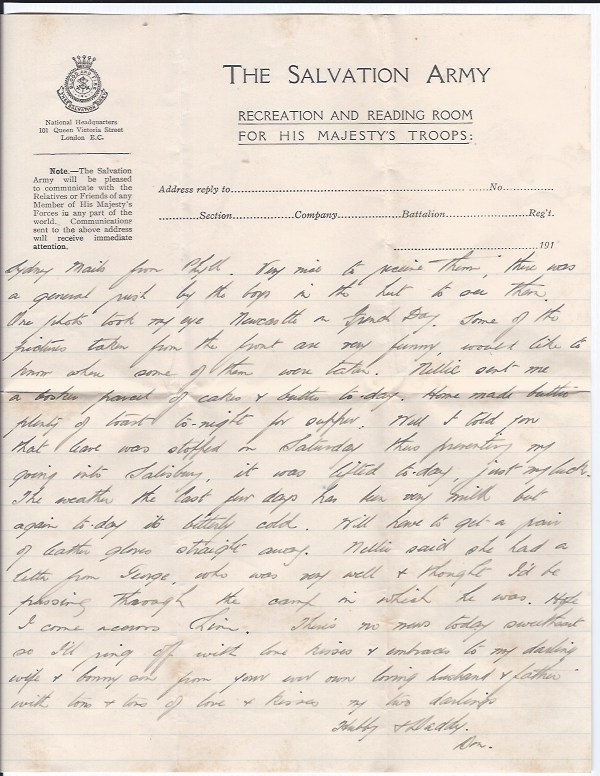 THE SALVATION ARMY
RECREATION AND READING ROOM
FOR HIS MAJESTY'S TROOPS:
BLOOD AND FIRE
THE SALVATION ARMY
National Headquarters
101 Queen Victoria Street
London E.C.
Note.—The Salvation
Army will be pleased
to communicate with the
Relatives or Friends of any
Member of His Majesty's
Forces in any part of the
world. Communications
sent to the above address
will receive immediate
attention.
Address reply to No.
Section Company Battalion Reg't.
191
Sydney Mails from Phyll. Very nice to receive them, there was
a general rush by the boys in the hut to see them.
One photo took my eye Newcastle on French Day. Some of the
pictures taken from the front are very funny, would like to
know where some of them were taken. Nellie sent me
a parcel of cakes & butter to-day. Home made butter
plenty of toast to-night for supper. Well I told you
that leave was stopped on Saturday thus preventing my
going into Salisbury, it was lifted to-day, just my luck.
The weather the last few days has been very mild but
again to-day its bitterly cold. Will have to get a pair
of leather gloves straight away. Nellie said she had a
letter from George, who was very well & thought I'd be
passing through the camp in which he was. Hope
I come accross him. There's no news today sweetheart
so I'll ring off with love kisses & embraces to my darling
wife & bonny son from your ever own loving husband & father
with tons & tons of love & kisses my two darlings
Hubby & Daddy.